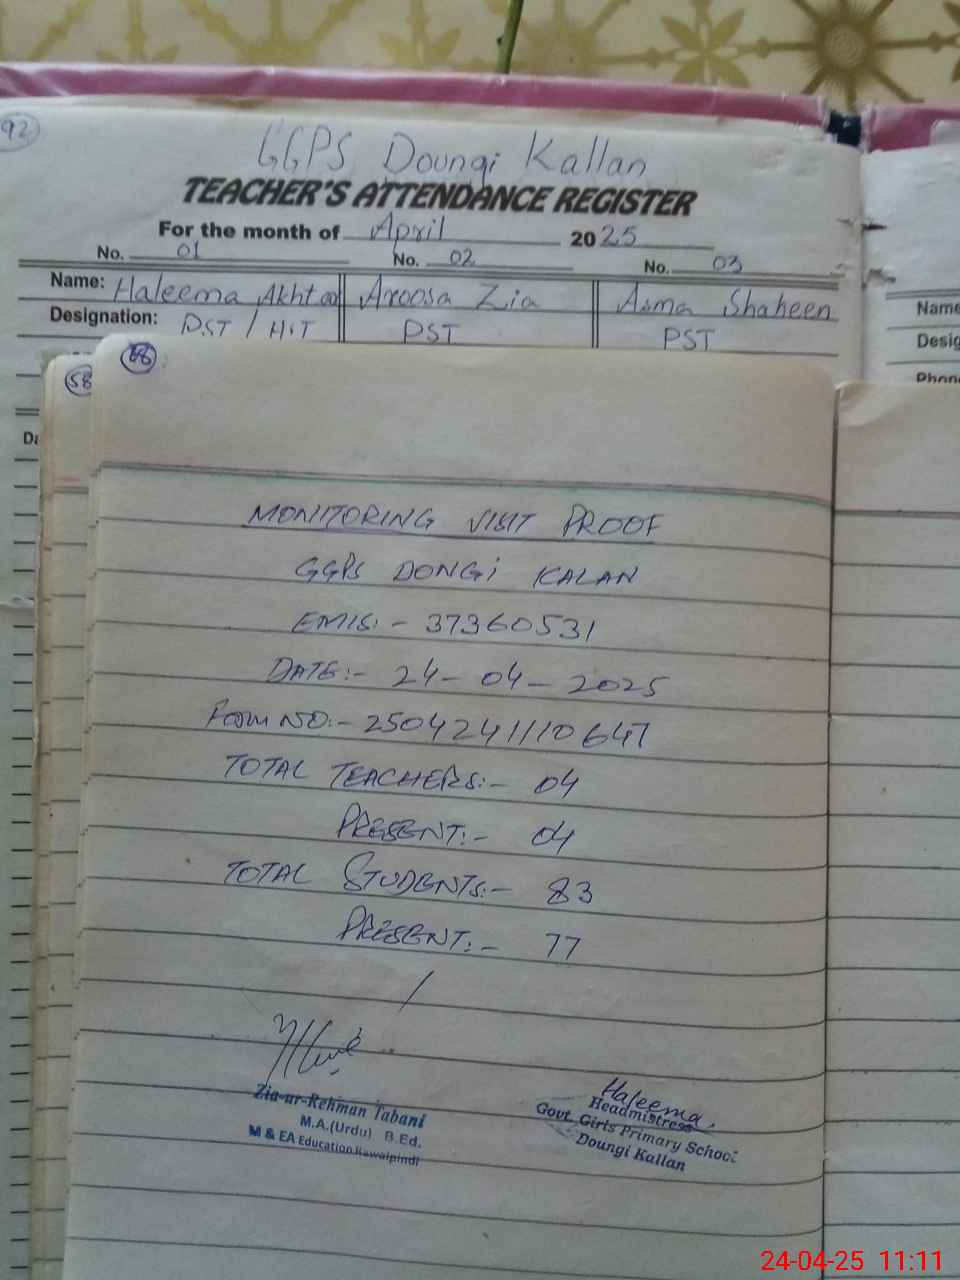 92
GGPS Doungi Kallan
TEACHER'S ATTENDANCE REGISTER
For the month of April 2025
No. 01 No. 02 No. 03
Name: Haleema Akhtar Aroosa Zia Asma Shaheen
Designation: PST / H.T PST PST
Name
Desig
Phon
58
Da
MONITORING VISIT PROOF
GGPS DONGI KALAN
EMIS:- 37360531
DATE:- 24-04-2025
FORM NO:- 2504241110647
TOTAL TEACHERS:- 04
PRESENT:- 04
TOTAL STUDENTS:- 83
PRESENT:- 77
Zia-ur-Rehman Tabani
M.A.(Urdu) B.Ed.
M & EA Education Rawalpindi
Haleema
Headmistress
Govt. Girls Primary School
Doungi Kallan
24-04-25 11:11